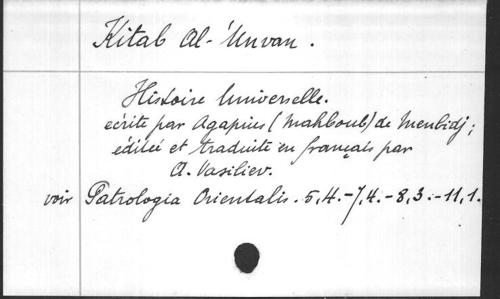 Kitab Al-'Unvan.
Histoire Universelle.
écrite par Agapius (Mahboub) de Menbidj;
éditée et traduite en français par
A. Vasiliev.
voir Patrologia Orientalis. 5,4.-7,4.-8,3.-11,1.